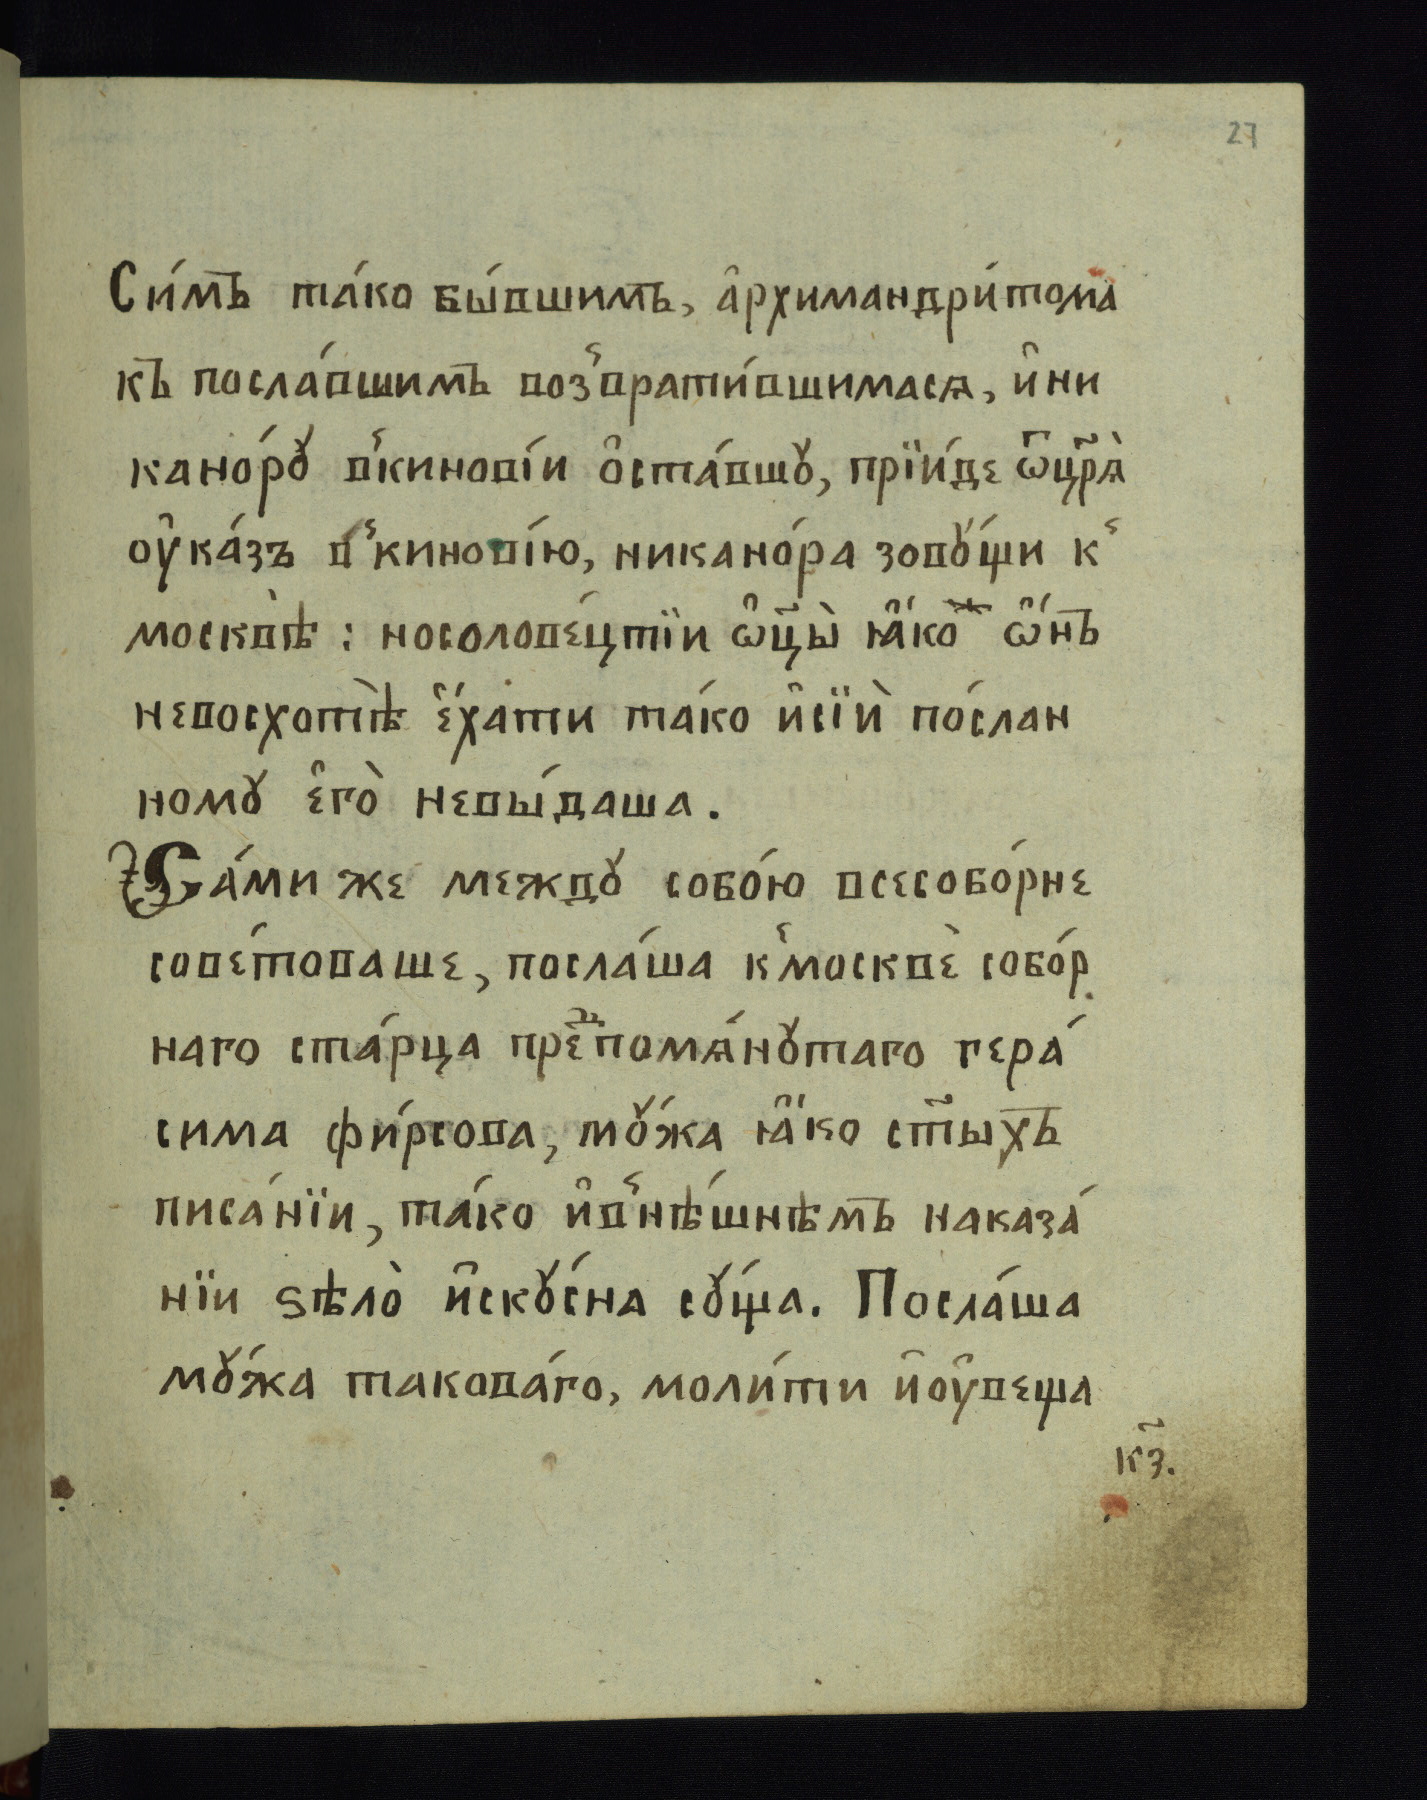 27
Си́мъ та́ко бы́вшимъ, а҆рхимандри́тома
къ посла́вшимъ воз̾врати́вшимася, и҆ни
кано́рꙋ в̾кинові́и ѻ҆ста́вшꙋ, прїи́де ѿцр҃ѧ̀
оу҆ка́зъ в̾кинові́ю, никано́ра зовꙋ́щи к̾
москвѣ̀: носолове́цтїи ѡ҆ц҃ы̀ ꙗ҆́коⷤ ѡ҆́нъ
невосхотѣ̀ є҆́хати та́ко и҆сїѝ по́слан
номꙋ є҆го̀ невы́даша.
Са́ми же междꙋ собо́ю всесобо́рне
сове́товаше, посла́ша к̾москвѐ собо́р
наго ста́рца преⷣпомѧ́нꙋтаго гера́
сима фи́рсова, мꙋ́жа ꙗ҆́ко ст҃ыхъ
писа́нїи, та́ко и҆в̾нѣ́шнѣмъ наказа́
нїи ѕѣло̀ и҆скꙋ́сна сꙋ́ща. Посла́ша
мꙋ́жа такова́го, моли́ти и҆оу҆веща
к҃з.